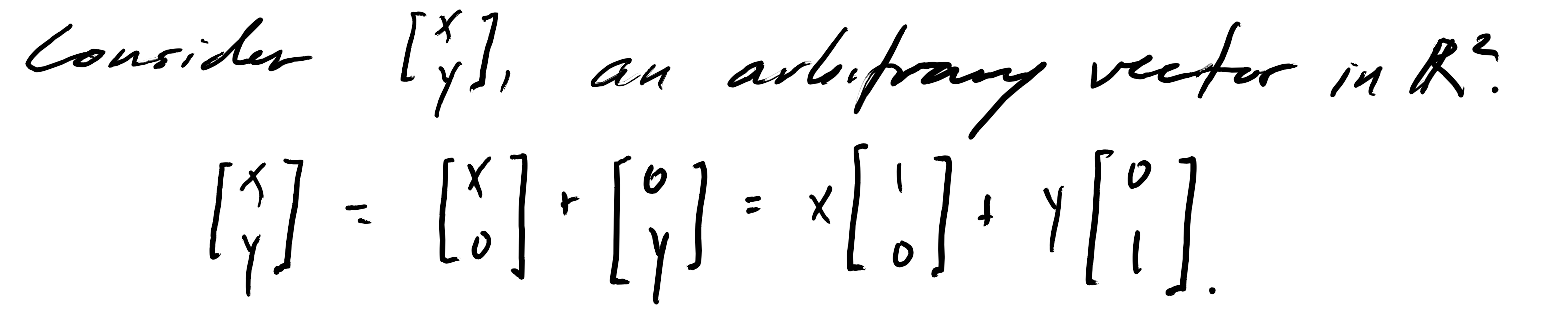 Consider [x y], an arbitrary vector in ℝ².
[x y] = [x 0] + [0 y] = x[1 0] + y[0 1].